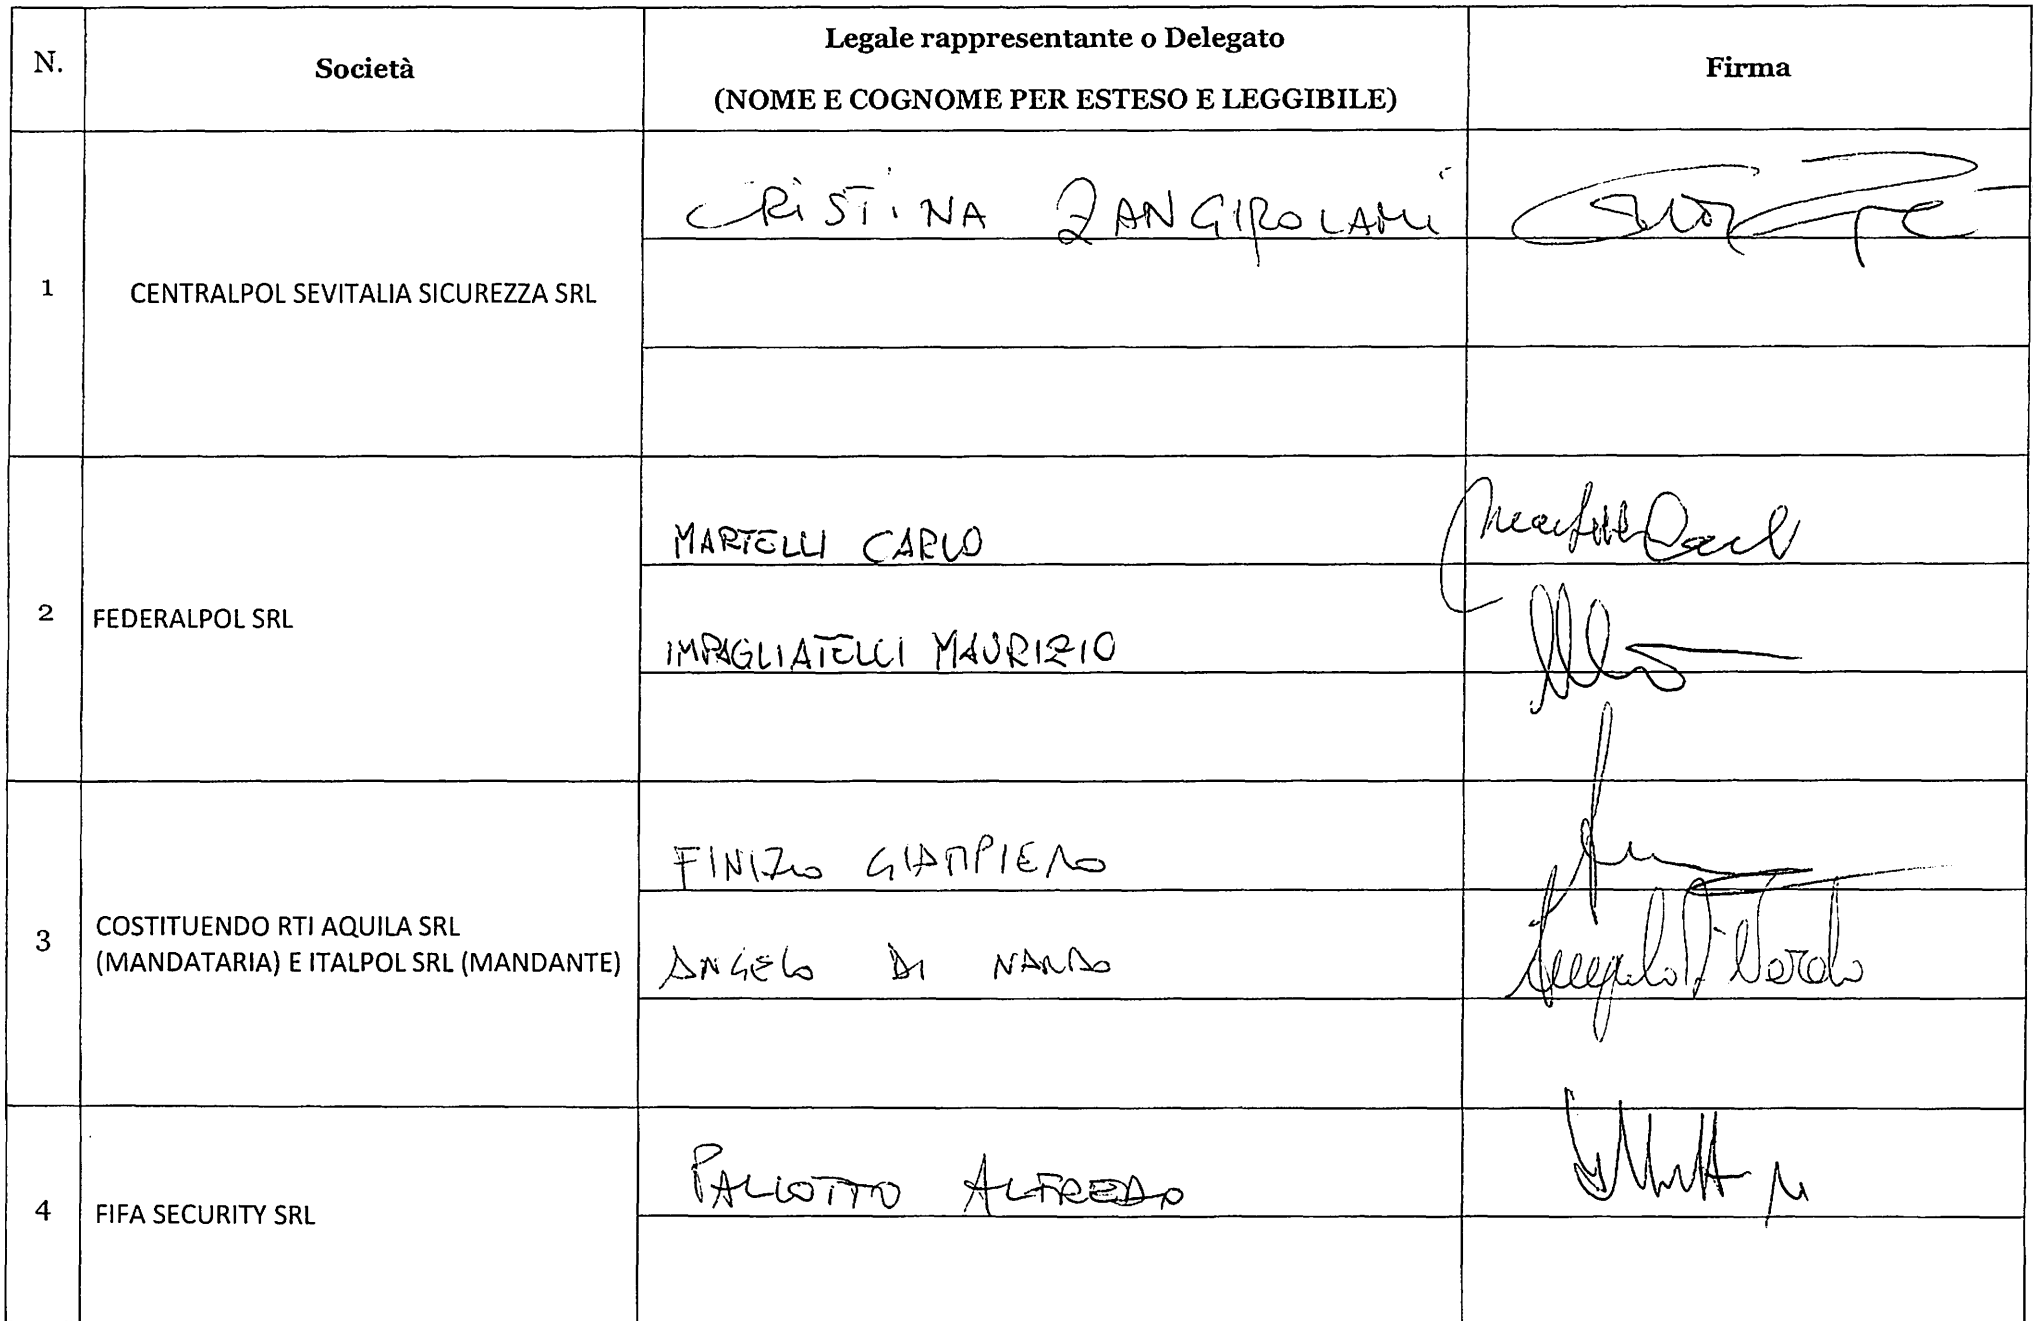 N.
Società
Legale rappresentante o Delegato
(NOME E COGNOME PER ESTESO E LEGGIBILE)
Firma
1
CENTRALPOL SEVITALIA SICUREZZA SRL
CRISTINA ZANGIROLAMI
2
FEDERALPOL SRL
MARTELLI CARLO
IMPAGLIATELLI MAURIZIO
3
COSTITUENDO RTI AQUILA SRL
(MANDATARIA) E ITALPOL SRL (MANDANTE)
FINIZIO GIAMPIERO
ANGELO DI NARDO
Angelo Di Nardo
4
FIFA SECURITY SRL
PALLOTTO ALFREDO